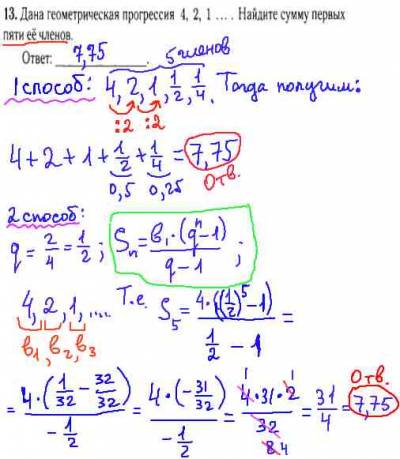 13. Дана геометрическая прогрессия 4, 2, 1 ... . Найдите сумму первых
пяти её членов.
Ответ: 7,75
5 членов
1 способ: 4, 2, 1, 1/2, 1/4. Тогда получим:
:2 :2
4+2+1+1/2+1/4=7,75
0,5 0,25 Отв.
2 способ:
q = 2/4 = 1/2; Sₙ = в₁·(qⁿ-1)/(q-1);
4, 2, 1, .... Т.е. S₅ = 4·((1/2)⁵-1)/(1/2-1) =
в₁, в₂, в₃
= 4·(1/32-32/32)/(-1/2) = 4·(-31/32)/(-1/2) = 4·31·2/32 = 31/4 = 7,75
1 1 8 4 Отв.